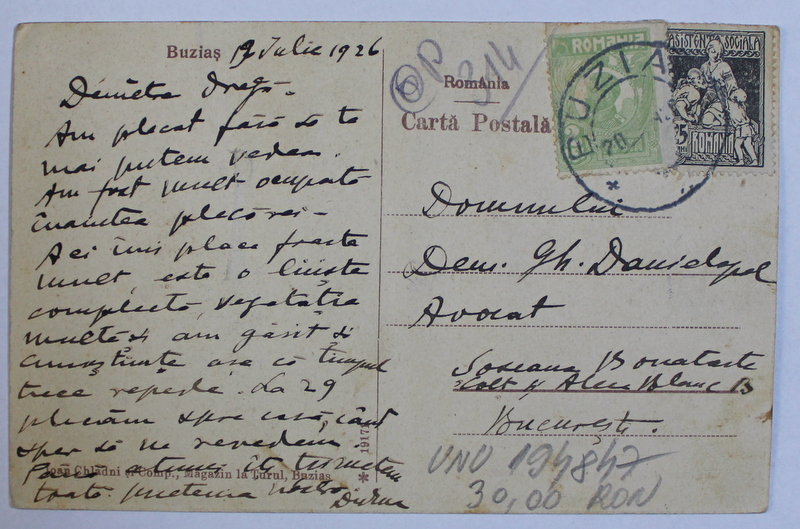 Buziaș 19 Iulie 1926
Dimitre dragă.
Am plecat fără să te
mai putem vedea.
Am fost mult ocupată
înaintea plecării –
Aci îmi place foarte
mult, este o liniște
complectă, vegetație
multă și am găsit și
cunoștințe așa că timpul
trece repede. La 29
plecăm spre casă, când
sper să ne revedem
Până atunci îți trimetem
toată prietenia
Ioan Chladni și Comp., Magazin la Turul, Buziaș
* 1917
OP 314
România
Cartă Postală
ROMANIA
BUZIAȘ
20
ASISTENȚA SOCIALĂ
25
ROMANIA
Domnului
Dem. Gh. Danielopol
Avocat
Șoseaua Bonaparte
colț cu Alea Blanc B
București.
UNU 194847
30,00 RON